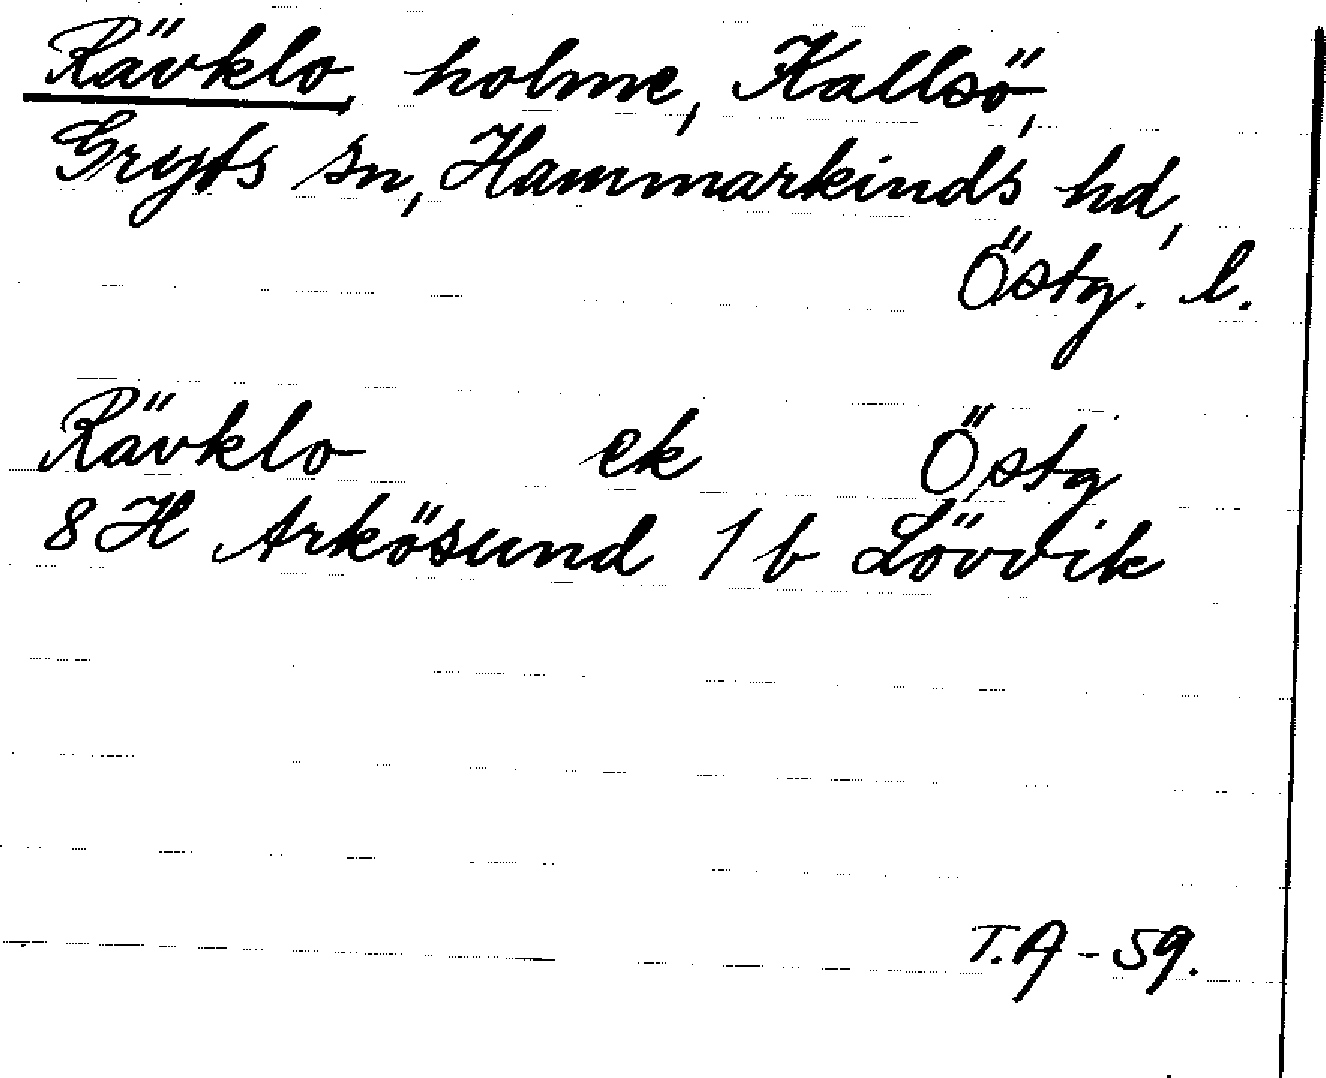 Rävklo, holme, Kallsö,
Gryts sn, Hammarkinds hd,
Östg. l.
Rävklo ek Östg.
8 H Arkösund 1 b Lövvik
T.A - 59.